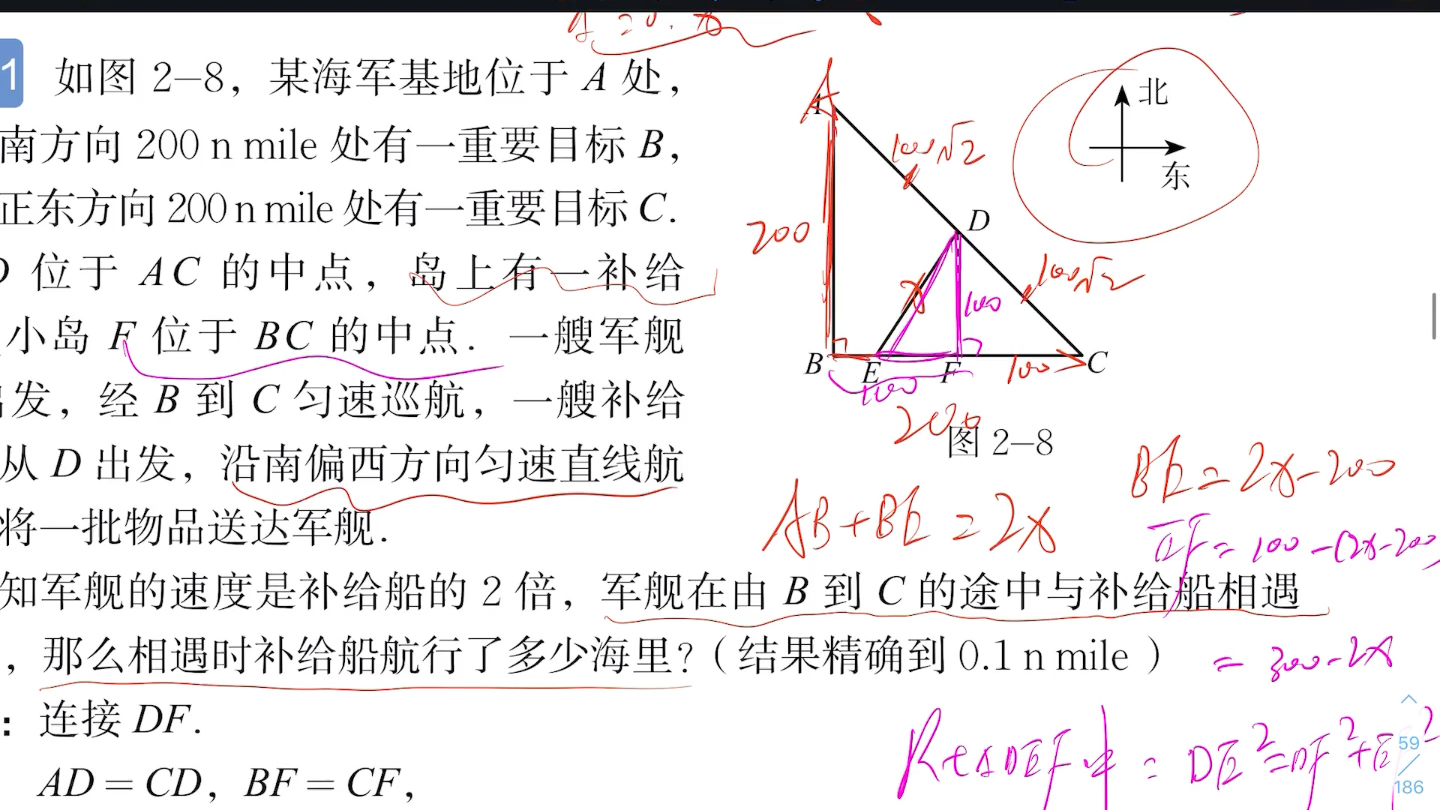 1 如图 2–8，某海军基地位于 A 处，
南方向 200 n mile 处有一重要目标 B，
正东方向 200 n mile 处有一重要目标 C.
D 位于 AC 的中点，岛上有一补给
小岛 F 位于 BC 的中点. 一艘军舰
出发，经 B 到 C 匀速巡航，一艘补给
从 D 出发，沿南偏西方向匀速直线航
将一批物品送达军舰.
知军舰的速度是补给船的 2 倍，军舰在由 B 到 C 的途中与补给船相遇
，那么相遇时补给船航行了多少海里?（结果精确到 0.1 n mile ）
：连接 DF.
AD = CD，BF = CF，
A
北
东
100√2
D
200
100√2
x
100
B E F 100 C
100
200
图 2–8
BE = 2x-200
AB+BE = 2x
EF = 100 -(2x-200)
= 300-2x
Rt△DEF中 = DE²=DF²+E²
59
186